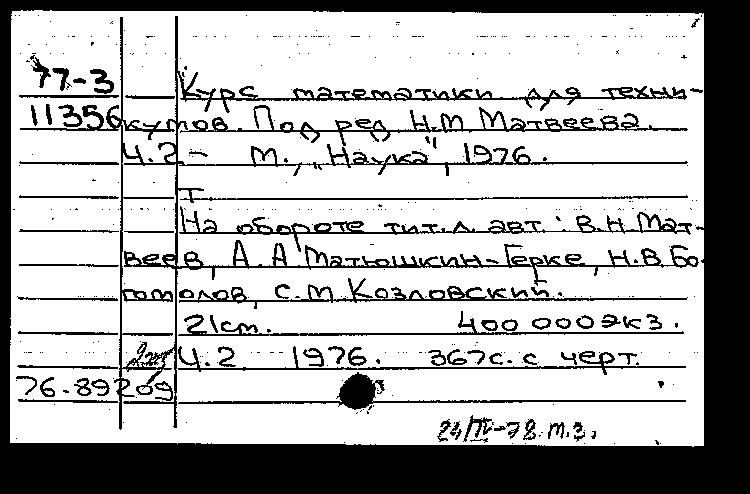 77-3 Курс математики для техни-
11356 кумов. Под ред. Н.М. Матвеева.
Ч.2 - М., „Наука", 1976.
Т
На обороте тит.л. авт.: В.Н. Мат-
веев, А.А. Матюшкин-Герке, Н.В. Бо-
гомолов, С.М. Козловский.
21 см. 400 000 экз.
Ч.2 1976. 367с. с черт.
76-89209
24/IV-78 т.з.